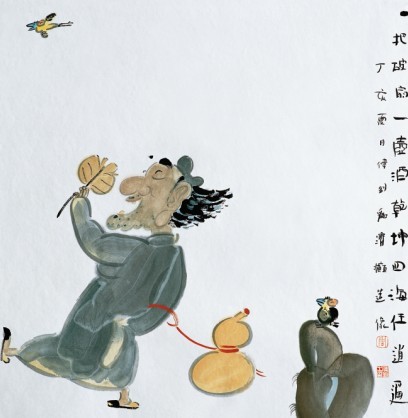 一把破扇一壺酒乾坤四海任逍遥
丁亥夏日寫濟癲造像